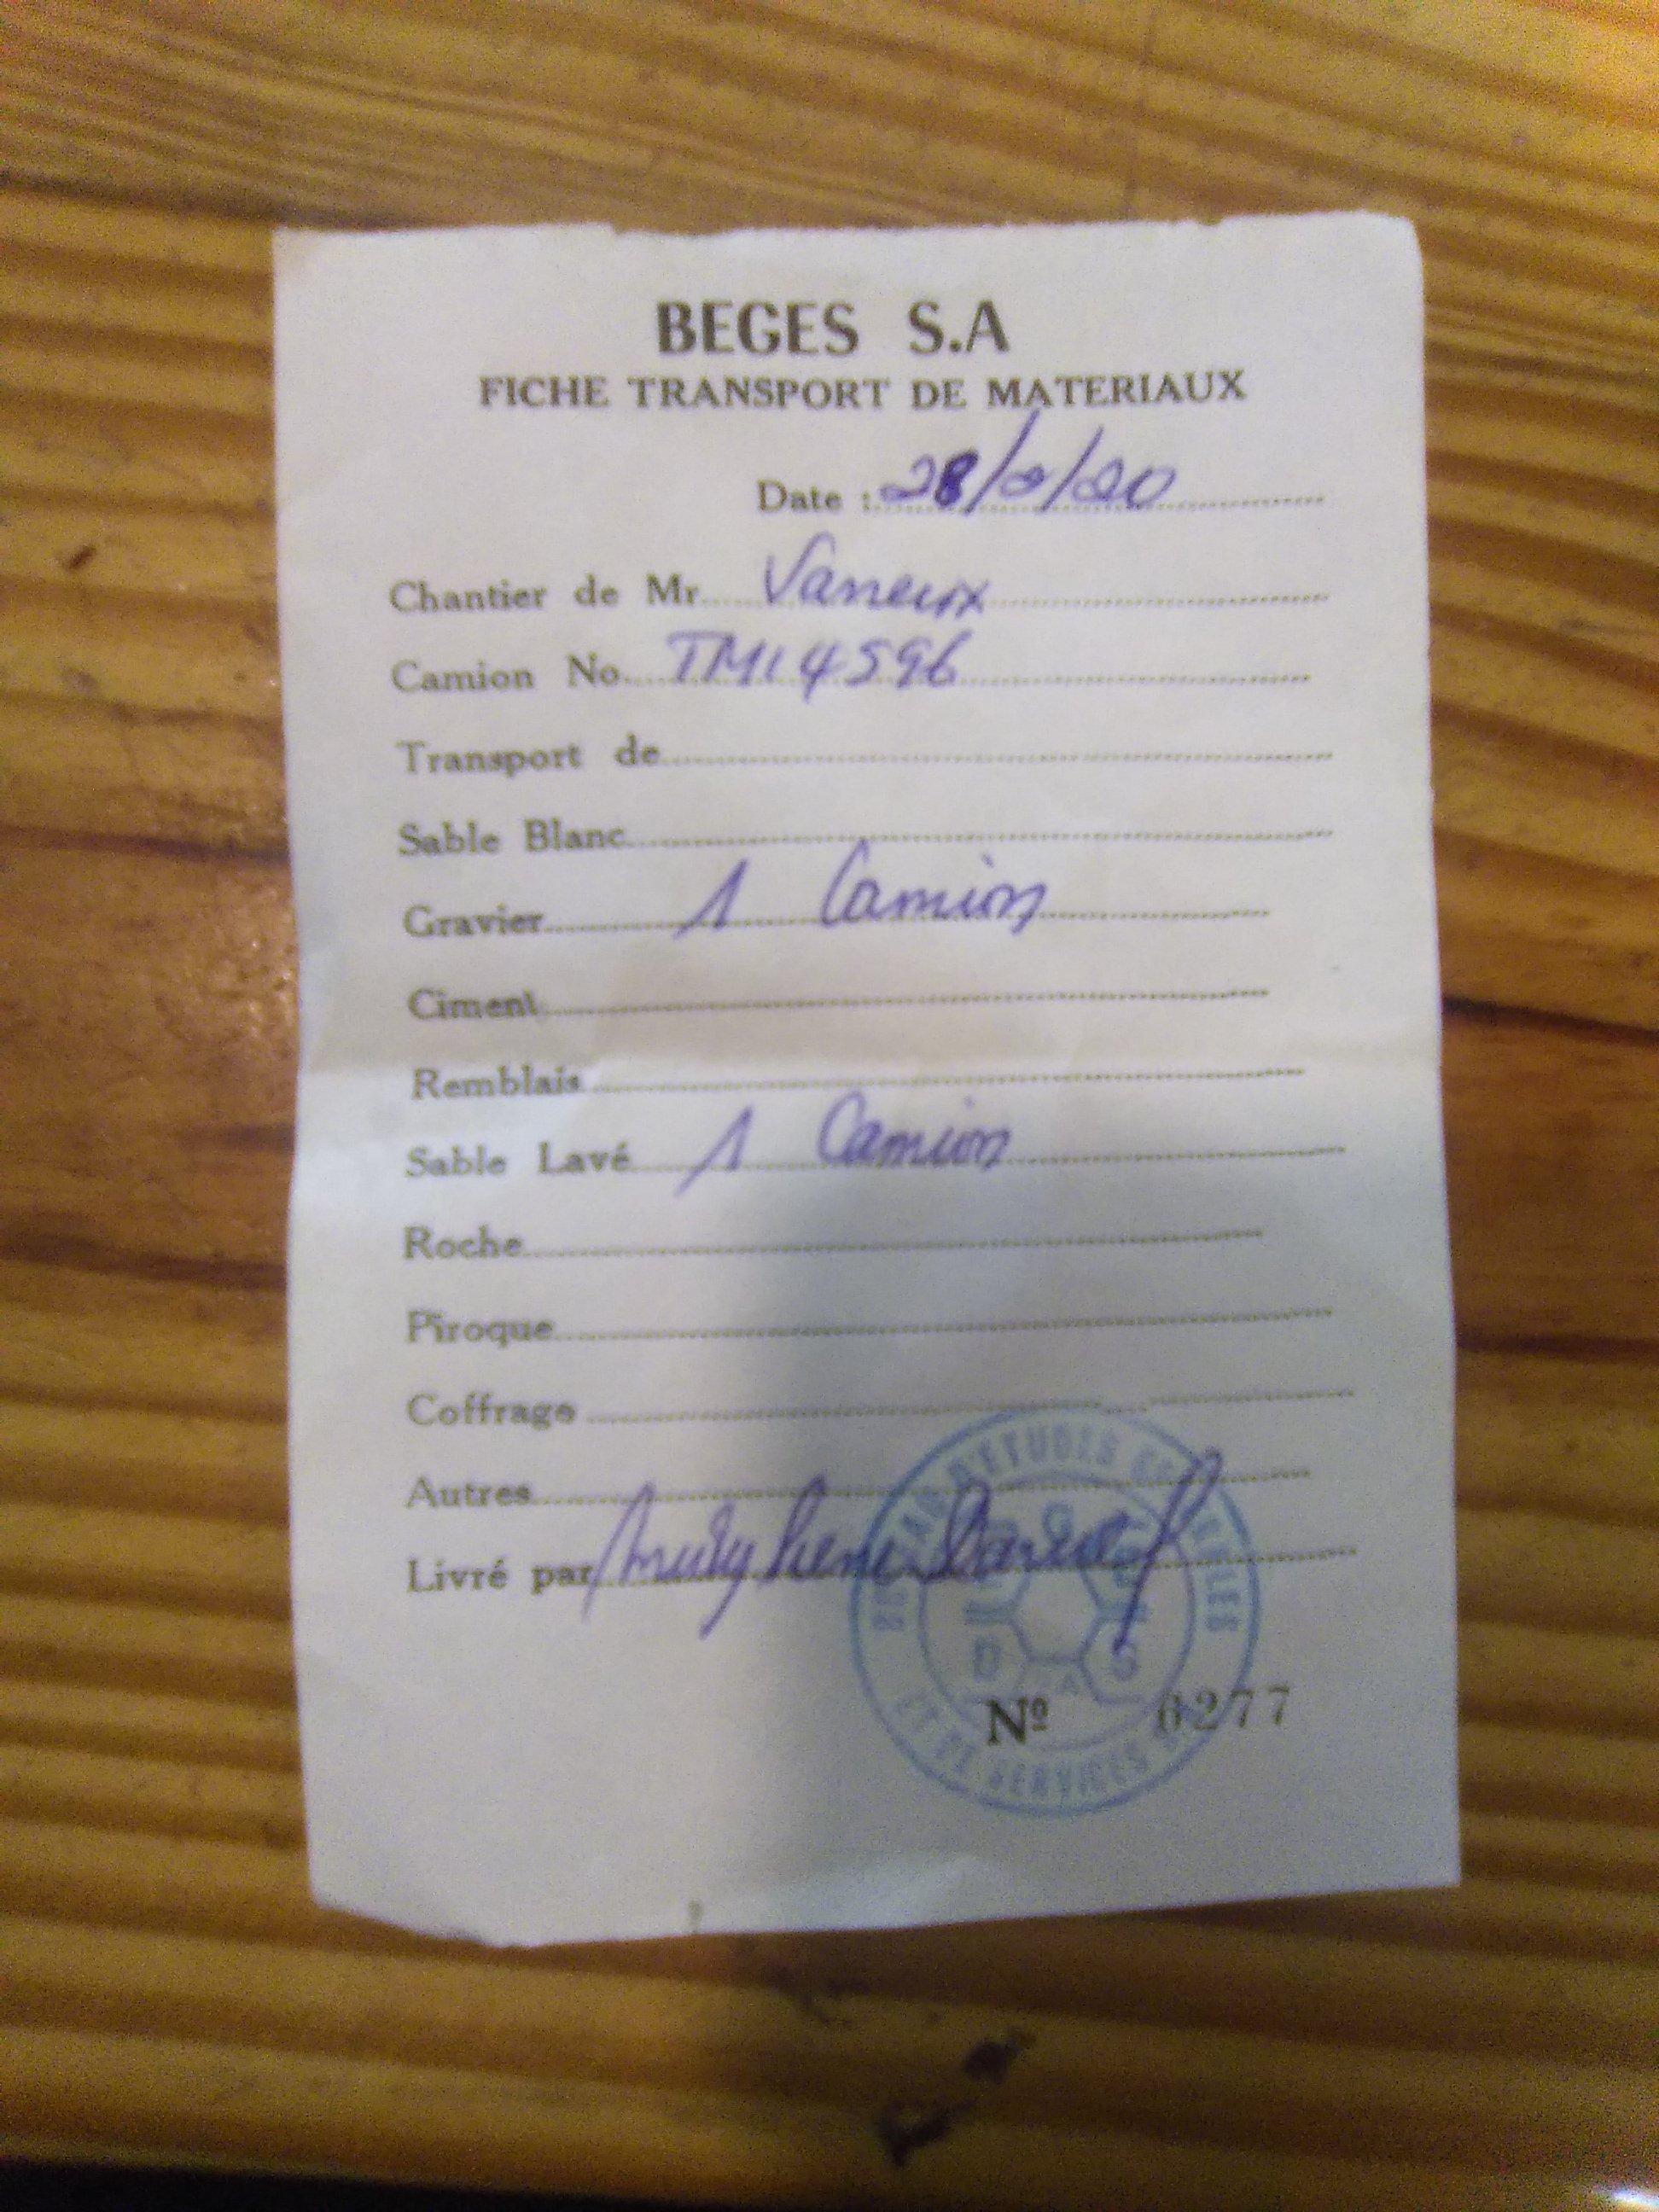 BEGES S.A
FICHE TRANSPORT DE MATERIAUX
Date : 28/2/20
Chantier de Mr Vaneux
Camion No TM14596
Transport de
Sable Blanc
Gravier 1 Camion
Ciment
Remblais
Sable Lavé 1 Camion
Roche
Piroque
Coffrage
Autres
Livré par
D'ETUDES
ET DE SERVICES
Nº 0277